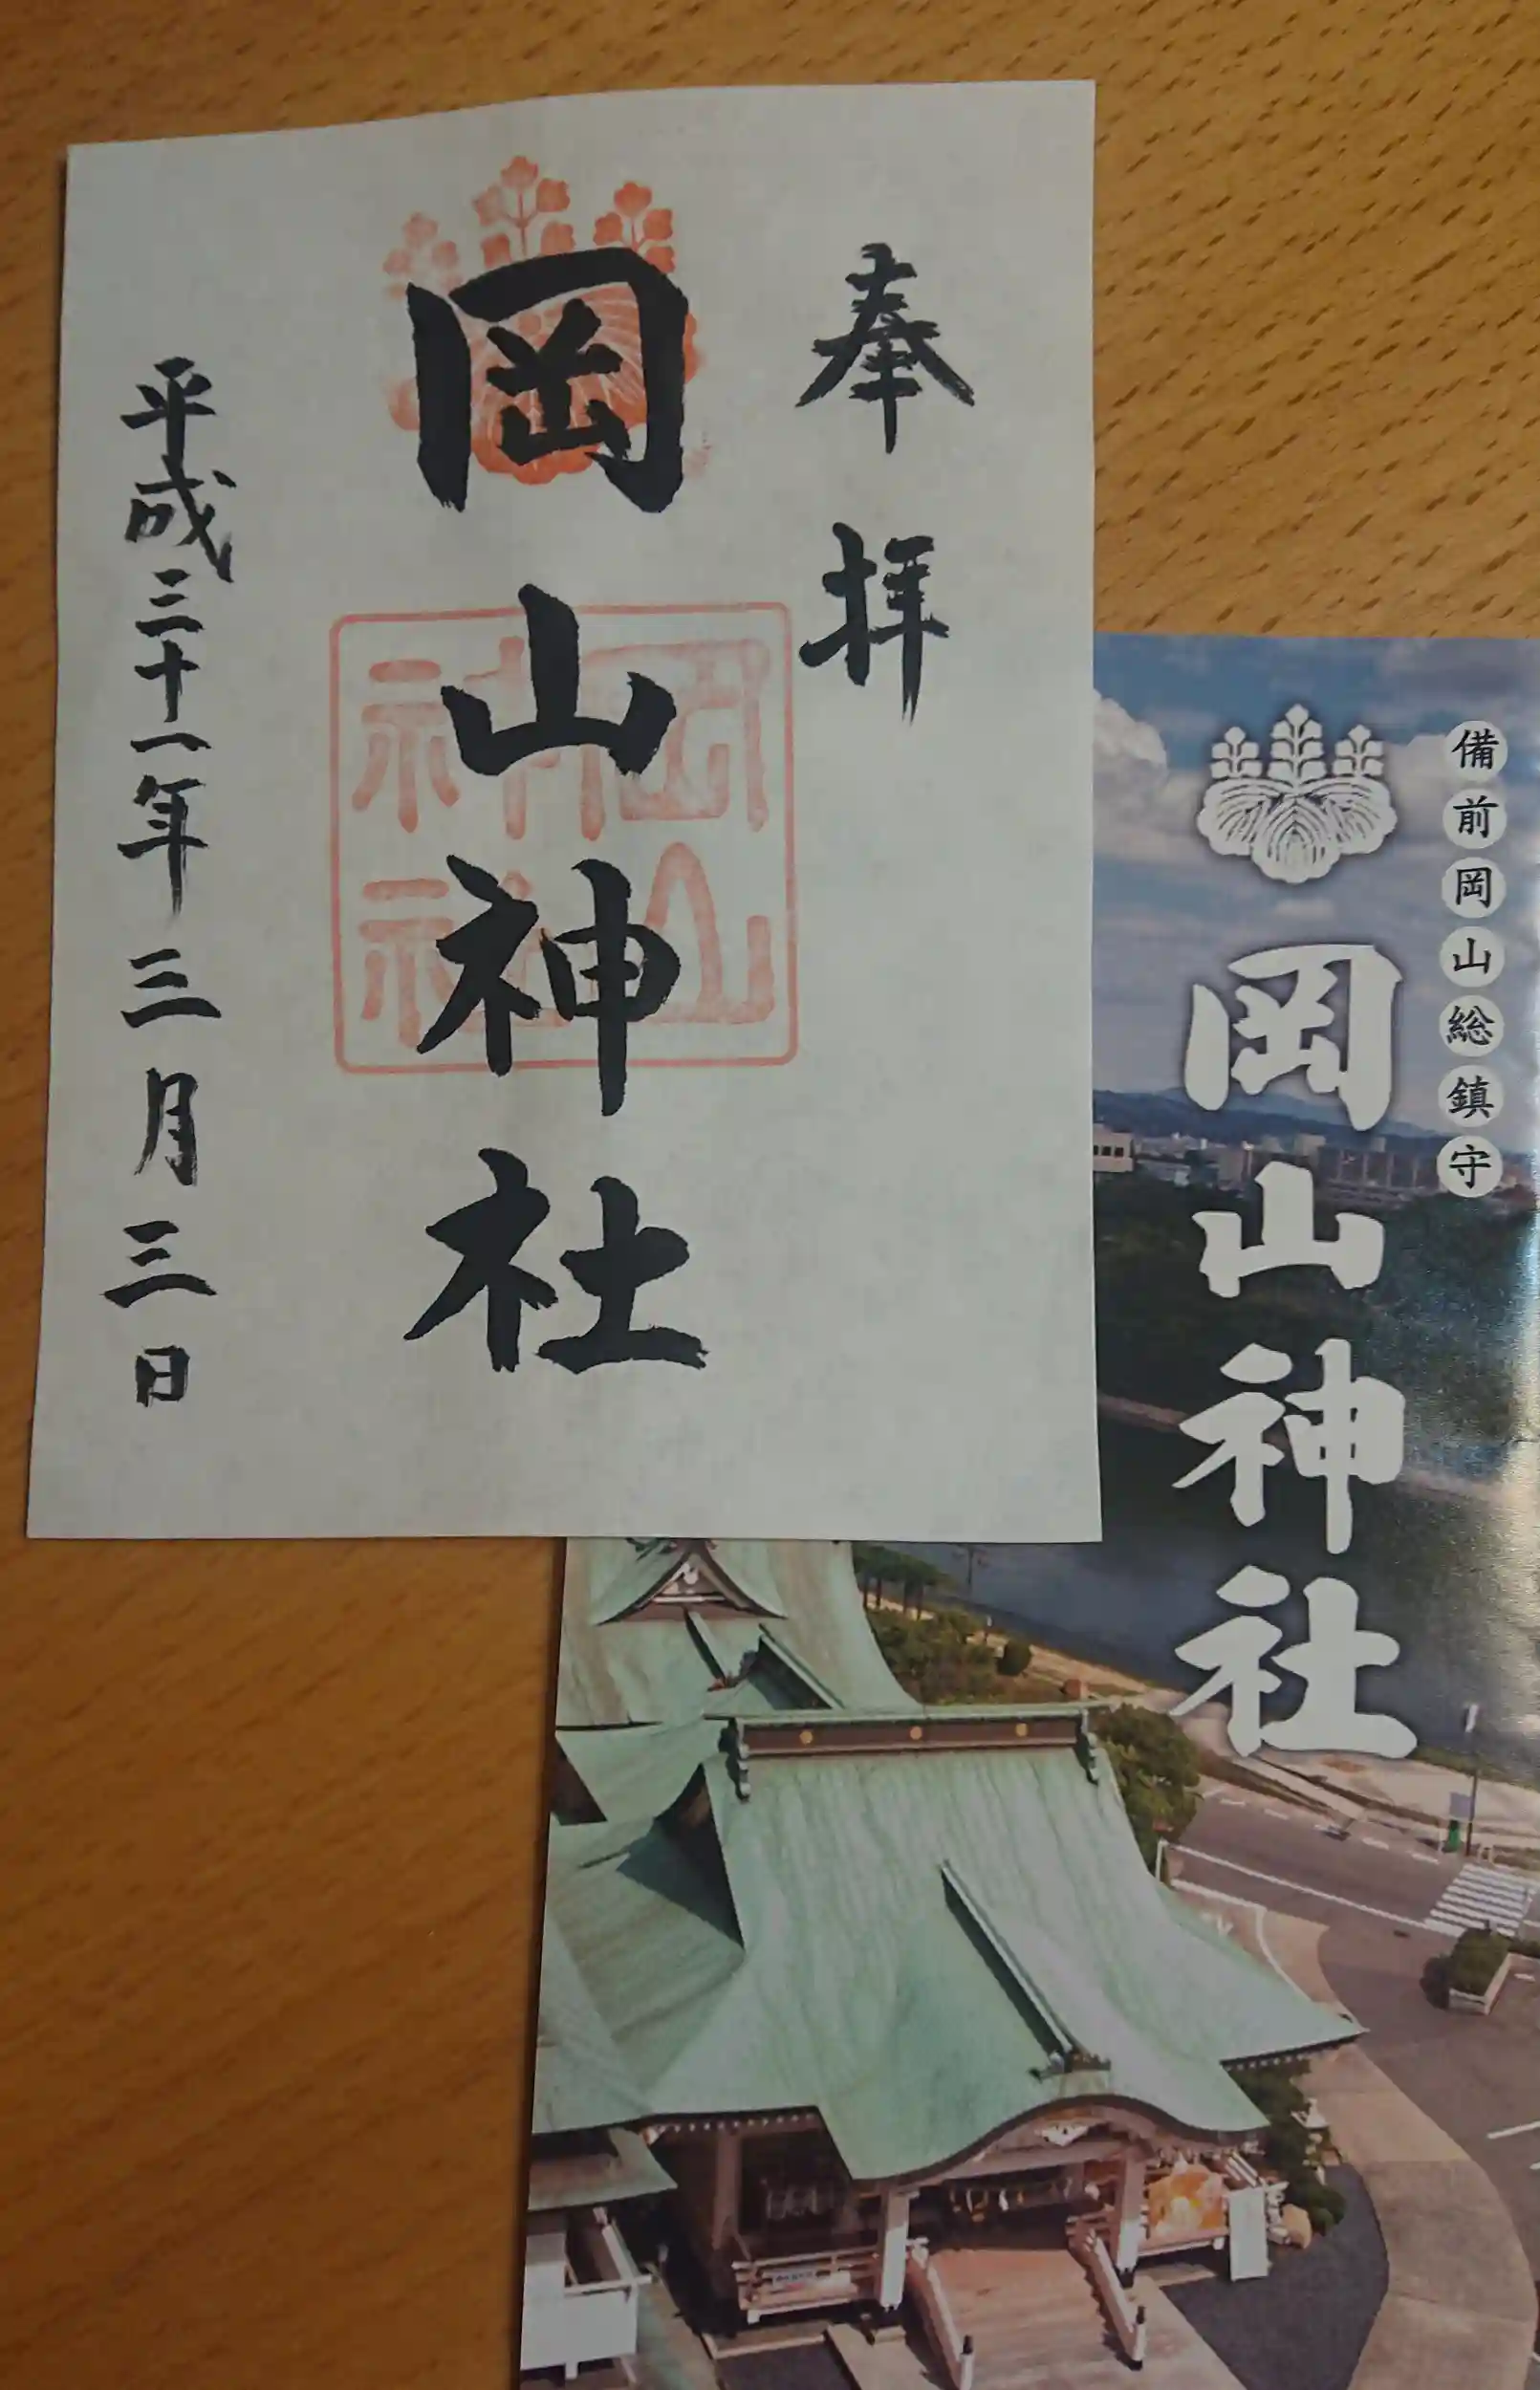 奉拝
岡山神社
岡山神社
平成三十一年三月三日
備前岡山総鎮守
岡山神社